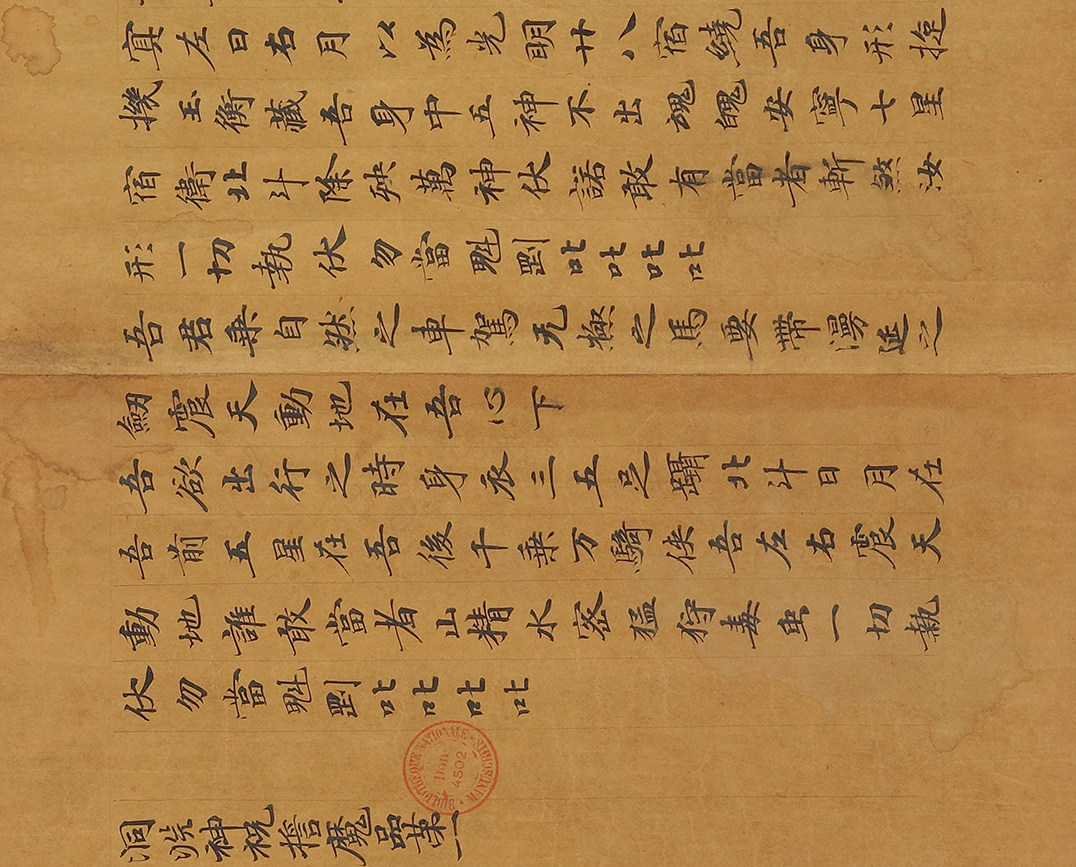 左日右月以為光明廿八宿繞吾身形琁
機玉衡藏吾身中五神不出魂魄安寧七星
宿衛北斗除殃萬神伏諾敢有當者斬煞汝
形一切執伏勿當魁㓻叱叱叱叱
吾君乗自然之車駕无極之馬要帶漫延之
劒震天動地在吾心下
吾欲出行之時身衣三五足躡北斗日月在
吾前五星在吾後千乗万騎侠吾左右震天
動地誰敢當者山精水密猛狩毒虫一切執
伏勿當魁㓻叱叱叱叱
BIBLIOTHÈQUE NATIONALE · MANUSCRITS ·
Don
4502
洞淵神祝誓魔品第一